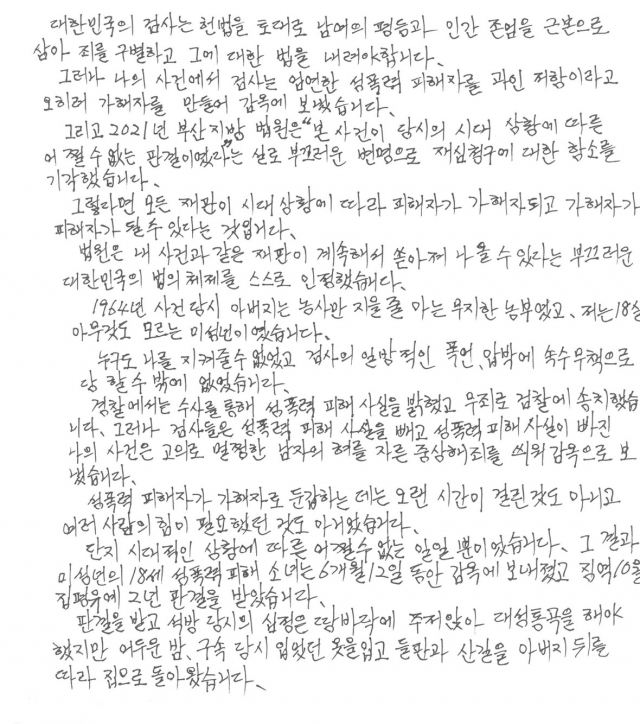 대한민국의 검사는 헌법을 토대로 남여의 평등과 인간 존엄을 근본으로
삼아 죄를 구별하고 그에 대한 법을 내려야합니다.
그러나 나의 사건에서 검사는 엄연한 성폭력 피해자를 과인 저항이라고
오히려 가해자를 만들어 감옥에 보냈습니다.
그리고 2021년 부산지방 법원은 "본 사건이 당시의 시대 상황에 따른
어쩔 수 없는 판결이였다"라는 실로 부끄러운 변명으로 재심청구에 대한 항소를
기각했습니다.
그렇다면 모든 재판이 시대상황에 따라 피해자가 가해자되고 가해자가
피해자가 될 수 있다는 것입니다.
법원은 내 사건과 같은 재판이 계속해서 쏟아져 나올 수 있다는 부끄러운
대한민국의 법의 체제를 스스로 인정했습니다.
1964년 사건 당시 아버지는 농사만 지을 줄 아는 무지한 농부였고, 저는 18살
아무것도 모르는 미성년이였습니다.
누구도 나를 지켜줄 수 없었고 검사의 일방적인 폭언, 압박에 속수무책으로
당 할 수 밖에 없었습니다.
경찰에서는 수사를 통해 성폭력 피해 사실을 밝혔고 무죄로 검찰에 송치했습
니다. 그러나 검사들은 성폭력 피해 사실을 빼고 성폭력 피해 사실이 빠진
나의 사건은 고의로 멀쩡한 남자의 혀를 자른 중상해죄를 씌워 감옥으로 보
냈습니다.
성폭력 피해자가 가해자로 둔갑하는 데는 오랜 시간이 걸린것도 아니고
여러 사람의 힘이 필요했던 것도 아니었습니다.
단지 시대적인 상황에 따른 어쩔수 없는 일일 뿐이었습니다. 그 결과
미성년의 18세 성폭력피해 소녀는 6개월 12일 동안 감옥에 보내졌고 징역 10월
집평유예 2년 판결을 받았습니다.
판결을 받고 석방 당시의 심정은 땅바닥에 주저앉아 대성통곡을 해야
했지만 어두운 밤, 구속 당시 입었던 옷을입고 들판과 산길을 아버지 뒤를
따라 집으로 돌아왔습니다.